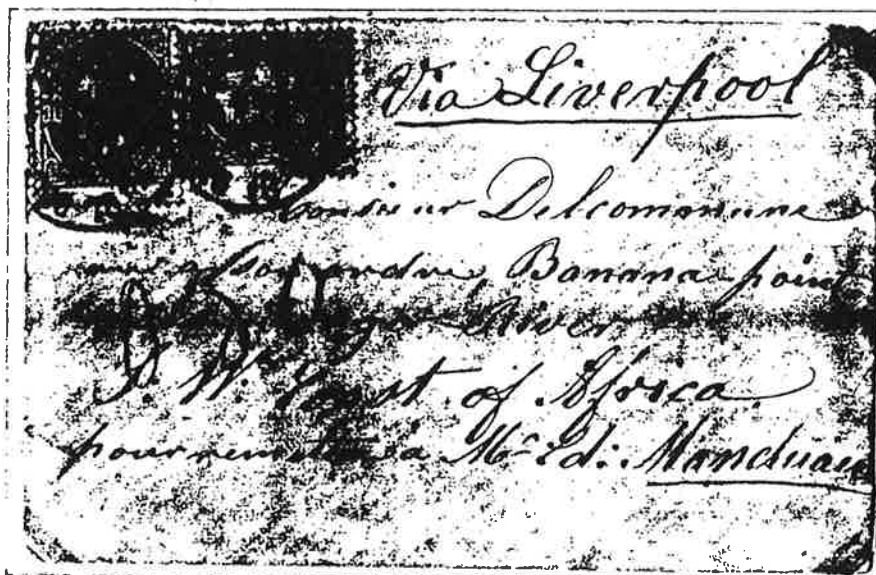 Via Liverpool
Monsieur Delcommune
Banana point
River
S. W. Coast of Africa
pour remettre à Mr Ed.